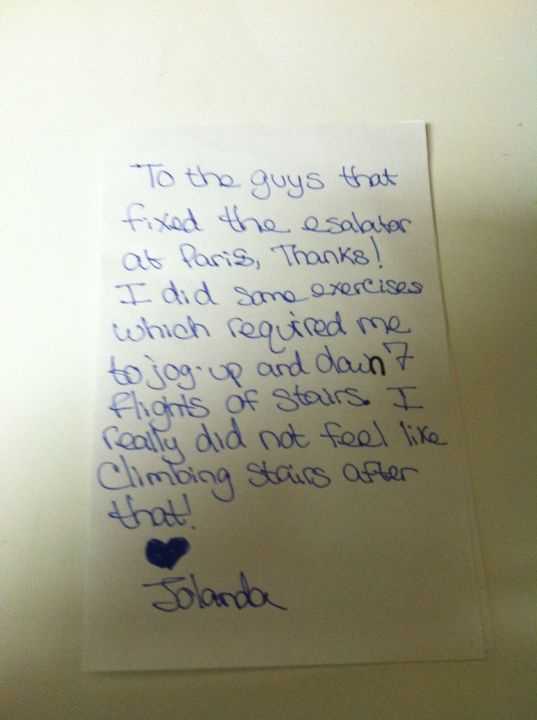 To the guys that
fixed the esalator
at Paris, Thanks!
I did some exercises
which required me
to jog up and down 7
flights of stairs. I
really did not feel like
Climbing stairs after
that!
♥
Jolanda